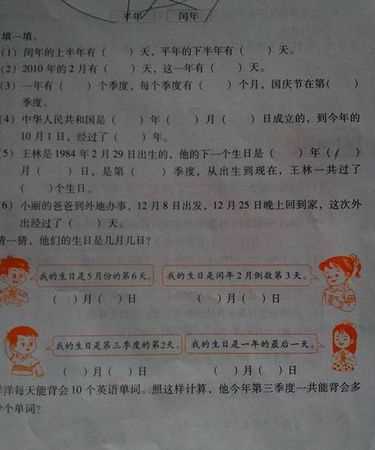 平年 闰年
填一填。
(1) 闰年的上半年有（ ）天，平年的下半年有（ ）天。
(2) 2010 年的 2 月有（ ）天，这一年有（ ）天。
(3) 一年有（ ）个季度，每个季度有（ ）个月，国庆节在第（ ）
季度。
(4) 中华人民共和国是（ ）年（ ）月（ ）日成立的，到今年的
10 月 1 日，经过了（ ）年。
(5) 王林是 1984 年 2 月 29 日出生的，他的下一个生日是（ ）年（ ）
月（ ）日，是第（ ）季度，从出生到现在，王林一共过了
（ ）个生日。
6) 小丽的爸爸到外地办事，12 月 8 日出发，12 月 25 日晚上回到家，这次外
出经过了（ ）天。
猜一猜，他们的生日是几月几日？
我的生日是5月份的第6天。 我的生日是闰年2月倒数第3天。
（ ）月（ ）日 （ ）月（ ）日
我的生日是第三季度的第2天。 我的生日是一年的最后一天。
（ ）月（ ）日 （ ）月（ ）日
洋每天能背会 10 个英语单词。照这样计算，他今年第三季度一共能背会多
个单词？